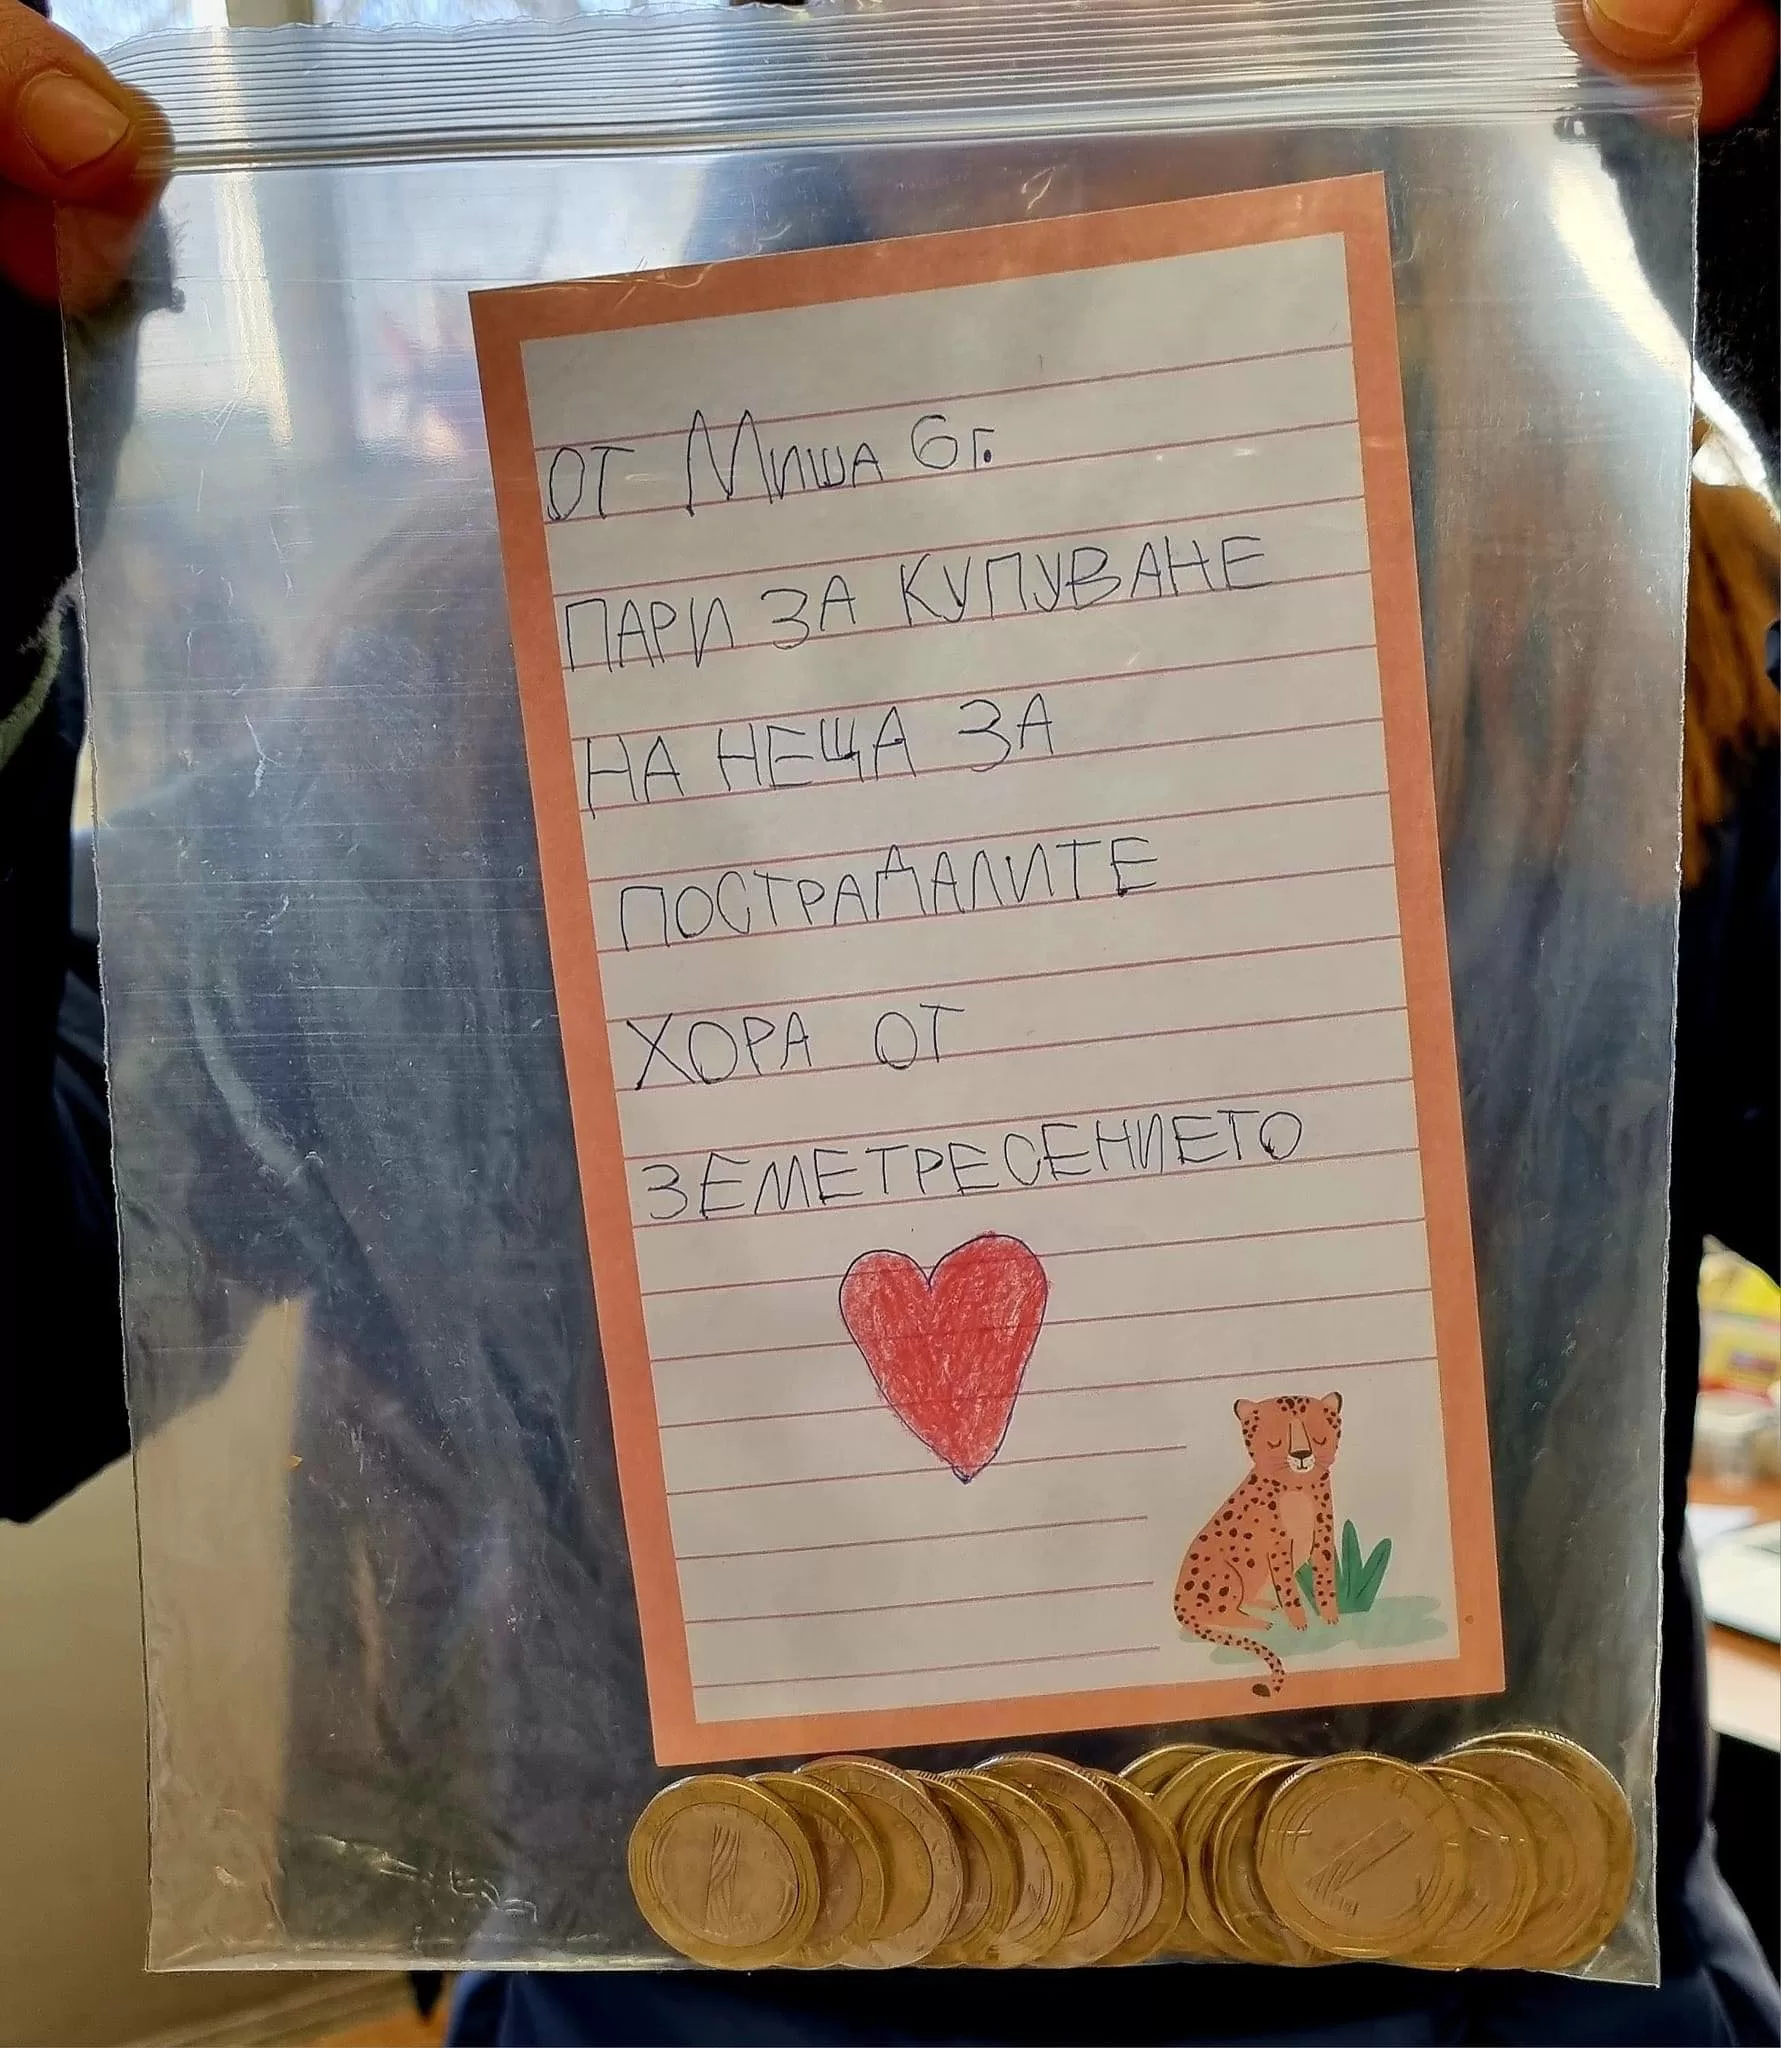 ОТ МИША 6 г.
ПАРИ ЗА КУПУВАНЕ
НА НЕЩА ЗА
ПОСТРАДАЛИТЕ
ХОРА ОТ
ЗЕМЕТРЕСЕНИЕТО